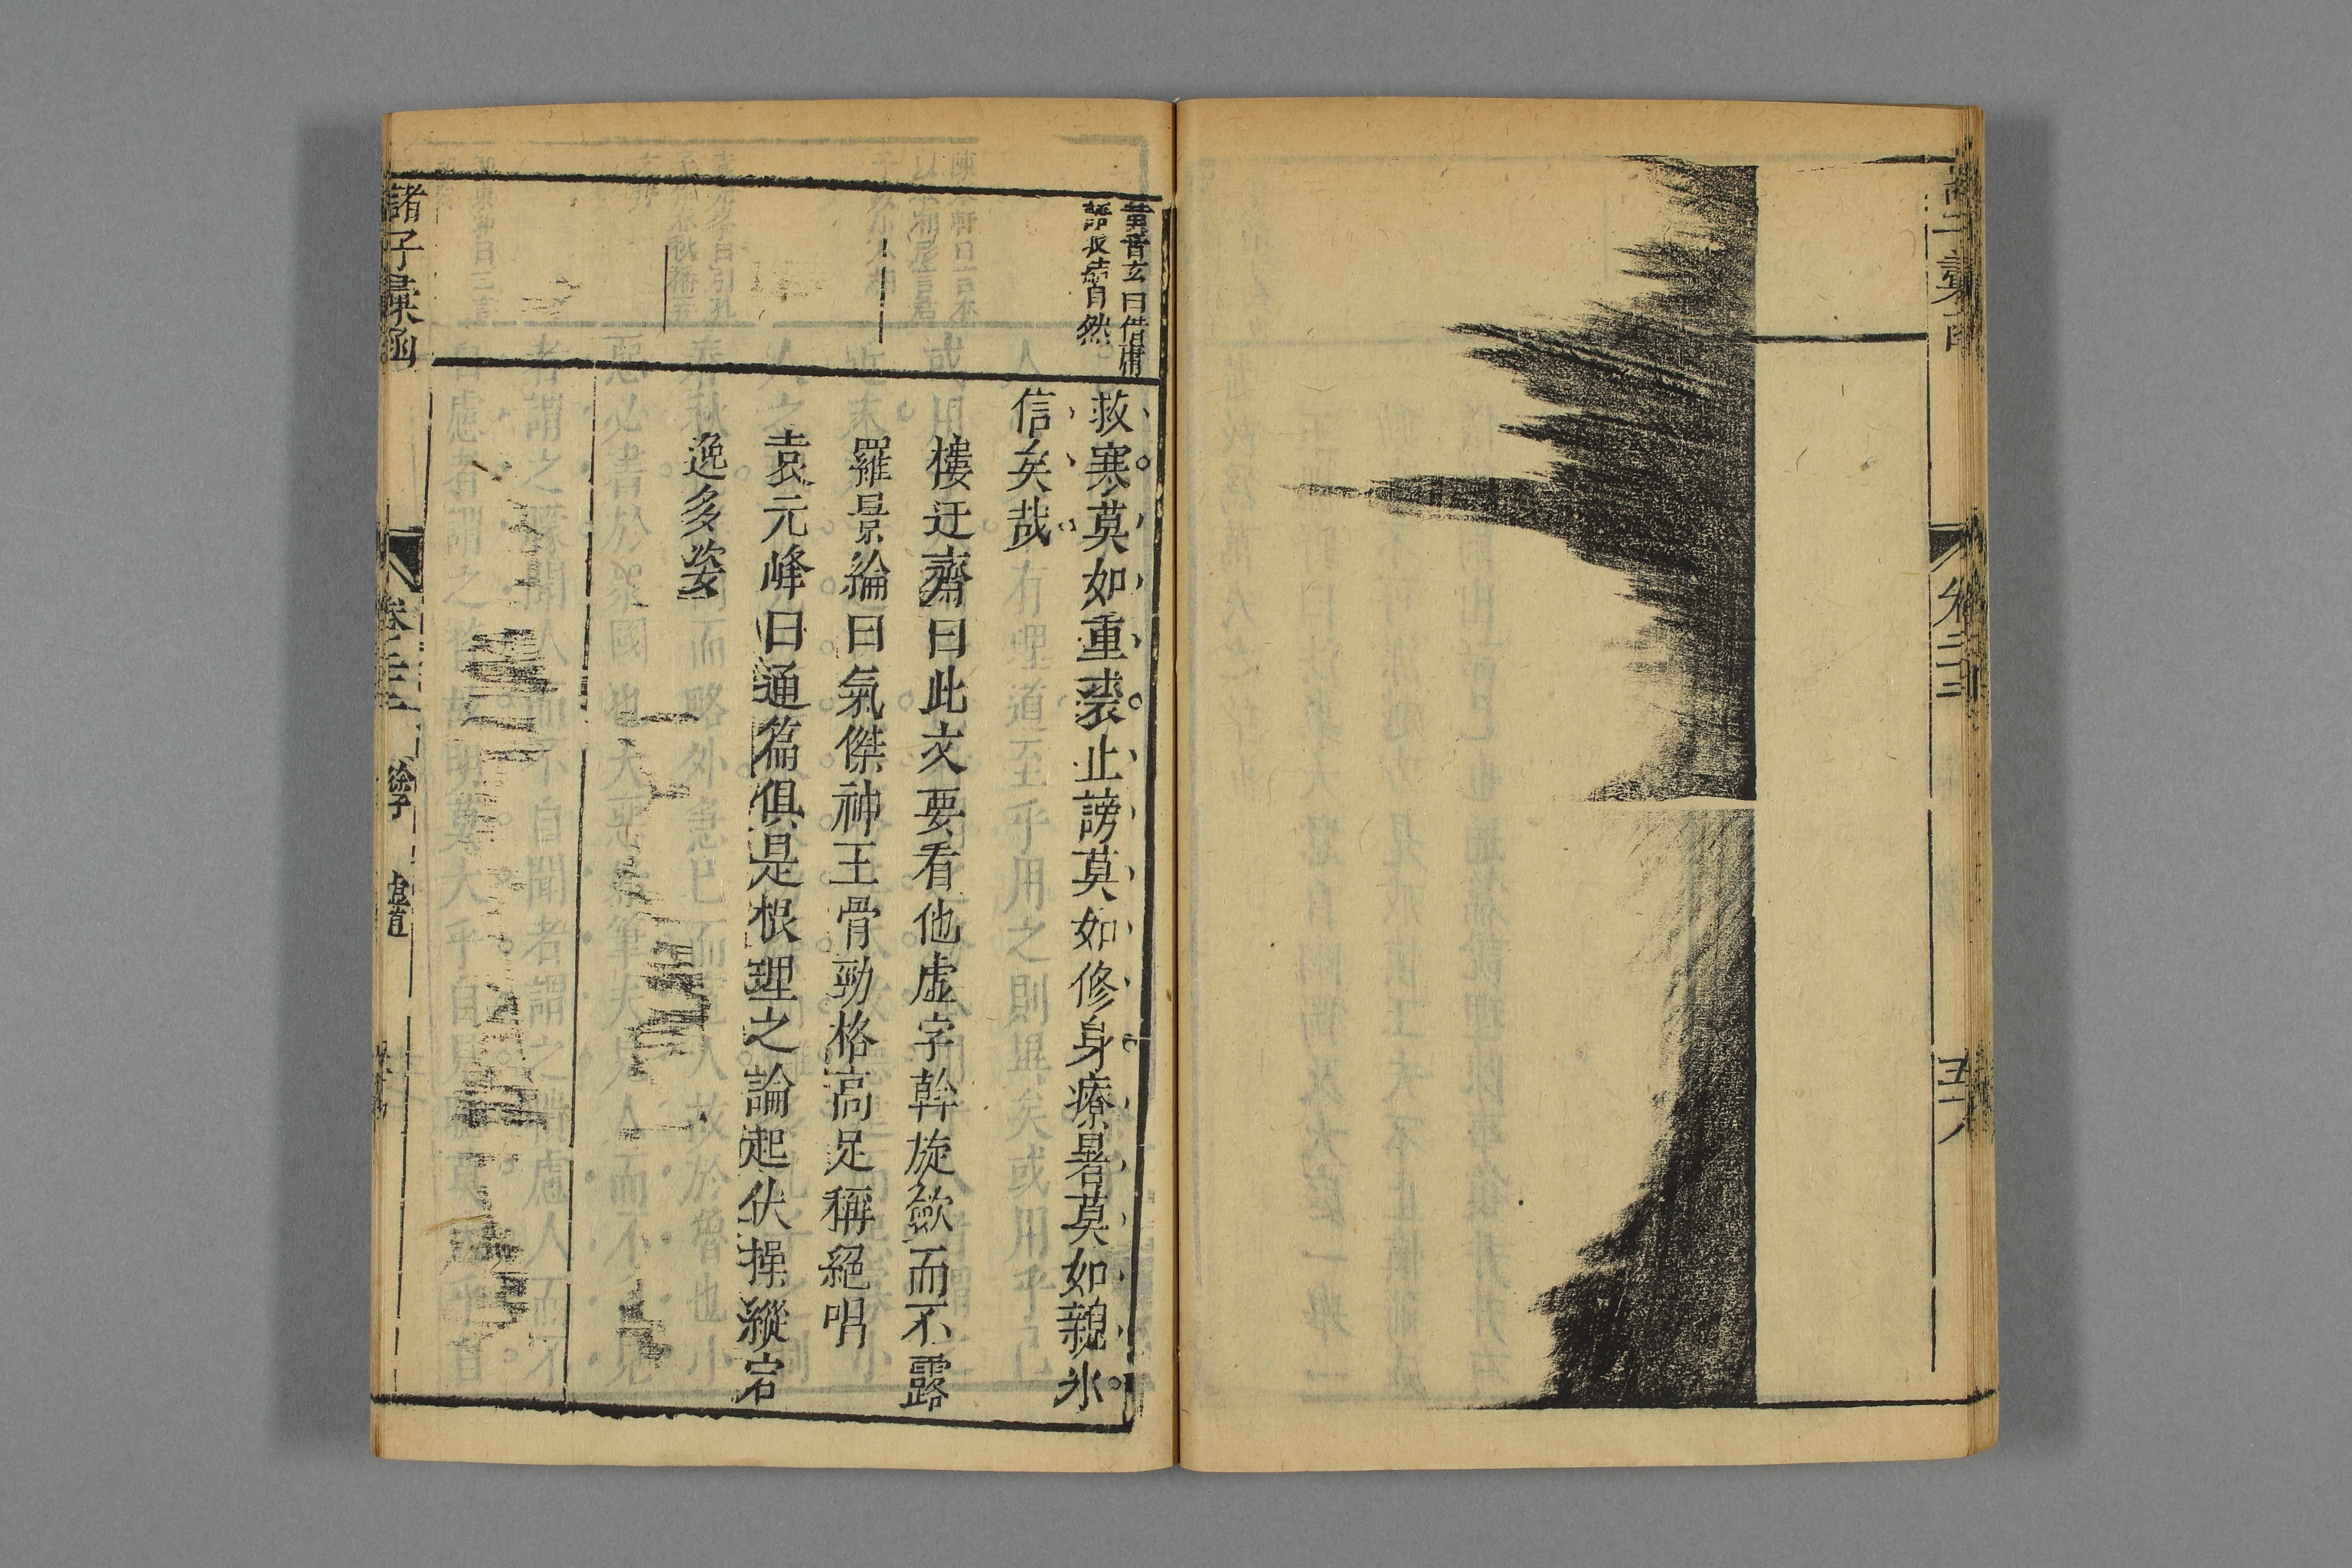 卷二十三
黃晉玄曰借庸
語收結自然
救寒莫如重裘止謗莫如修身療暑莫如親氷
信矣哉
樓迂齋曰此文要看他虛字斡旋歛而不露
羅景綸曰氣傑神王骨勁格高足稱絕唱
袁元峰曰通篇俱是根理之論起伏操縱宕
逸多姿
諸子彙函
卷二十三
徐子
虛道